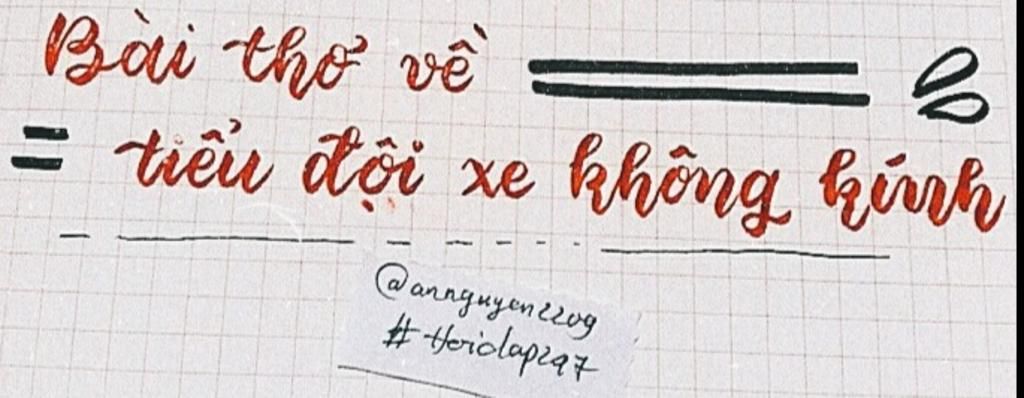 Bài thơ về
tiểu đội xe không kính
@annguyen2209
#Hoidap247